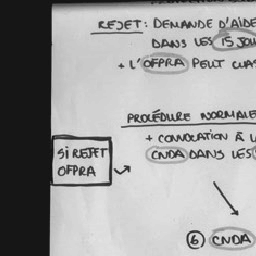 REJET : DEMANDE D'AIDE
DANS LES 15 JOU
+ L'OFPRA PEUT CLAS
PROCÉDURE NORMALE
+ CONVOCATION À L
CNDA DANS LES
SI REJET
OFPRA
6 CNDA